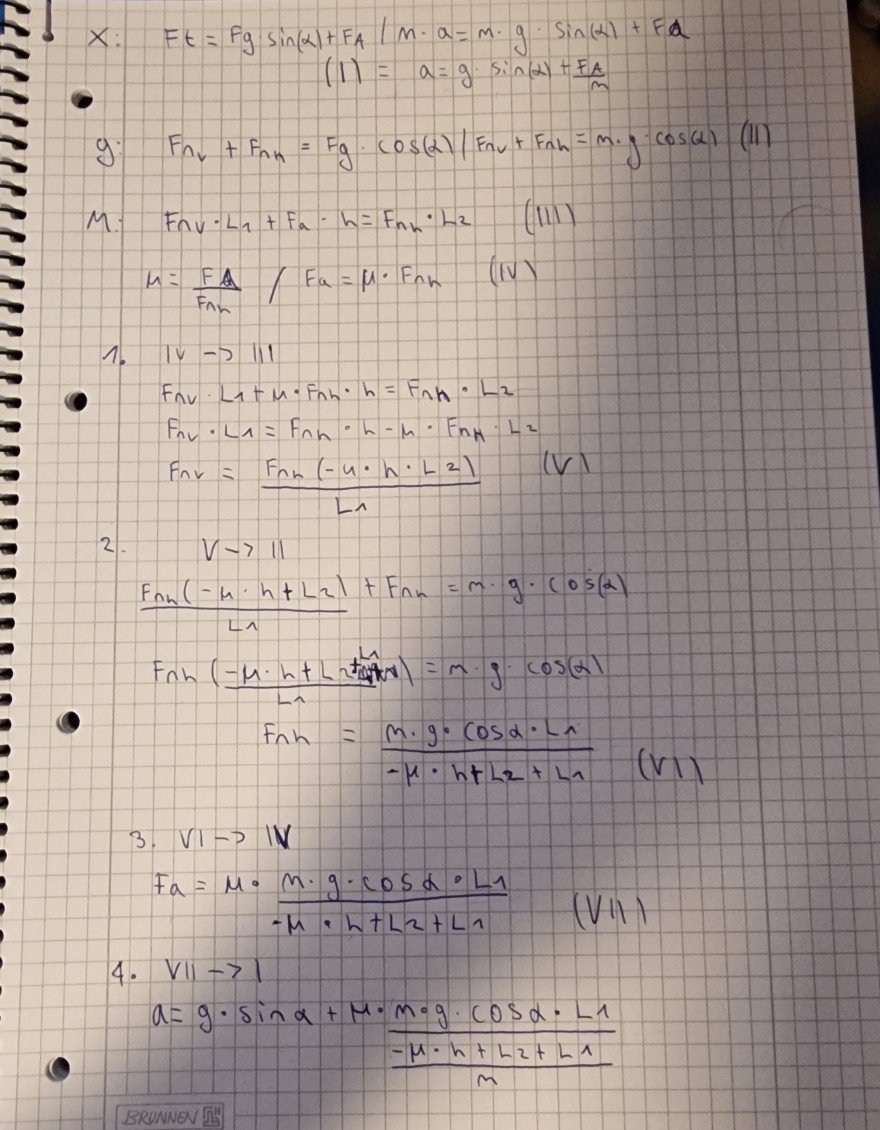 X: Ft = Fg sin(α) + FA / m · a = m · g · sin(α) + Fa
(I) = a = g · sin(α) + FA/m
y: Fnv + Fnh = Fg · cos(α) / Fnv + Fnh = m · g · cos(α) (II)
M: Fnv · L1 + Fa · h = Fnh · L2 (III)
μ = FA/Fnh / Fa = μ · Fnh (IV)
1. IV -> III
Fnv · L1 + μ · Fnh · h = Fnh · L2
Fnv · L1 = Fnh · h - μ · Fnh · L2
Fnv = Fnh (-μ · h · L2)/L1 (V)
2. V -> II
Fnh (-μ · h + L2)/L1 + Fnh = m · g · cos(α)
Fnh (-μ · h + L2 + L1/L1) = m · g · cos(α)
Fnh = m · g · cos α · L1/-μ · h + L2 + L1 (VI)
3. VI -> IV
Fa = μ · m · g · cos α · L1/-μ · h + L2 + L1 (VII)
4. VII -> I
a = g · sin α + μ · m · g · cos α · L1/-μ · h + L2 + L1/m
BRUNNEN